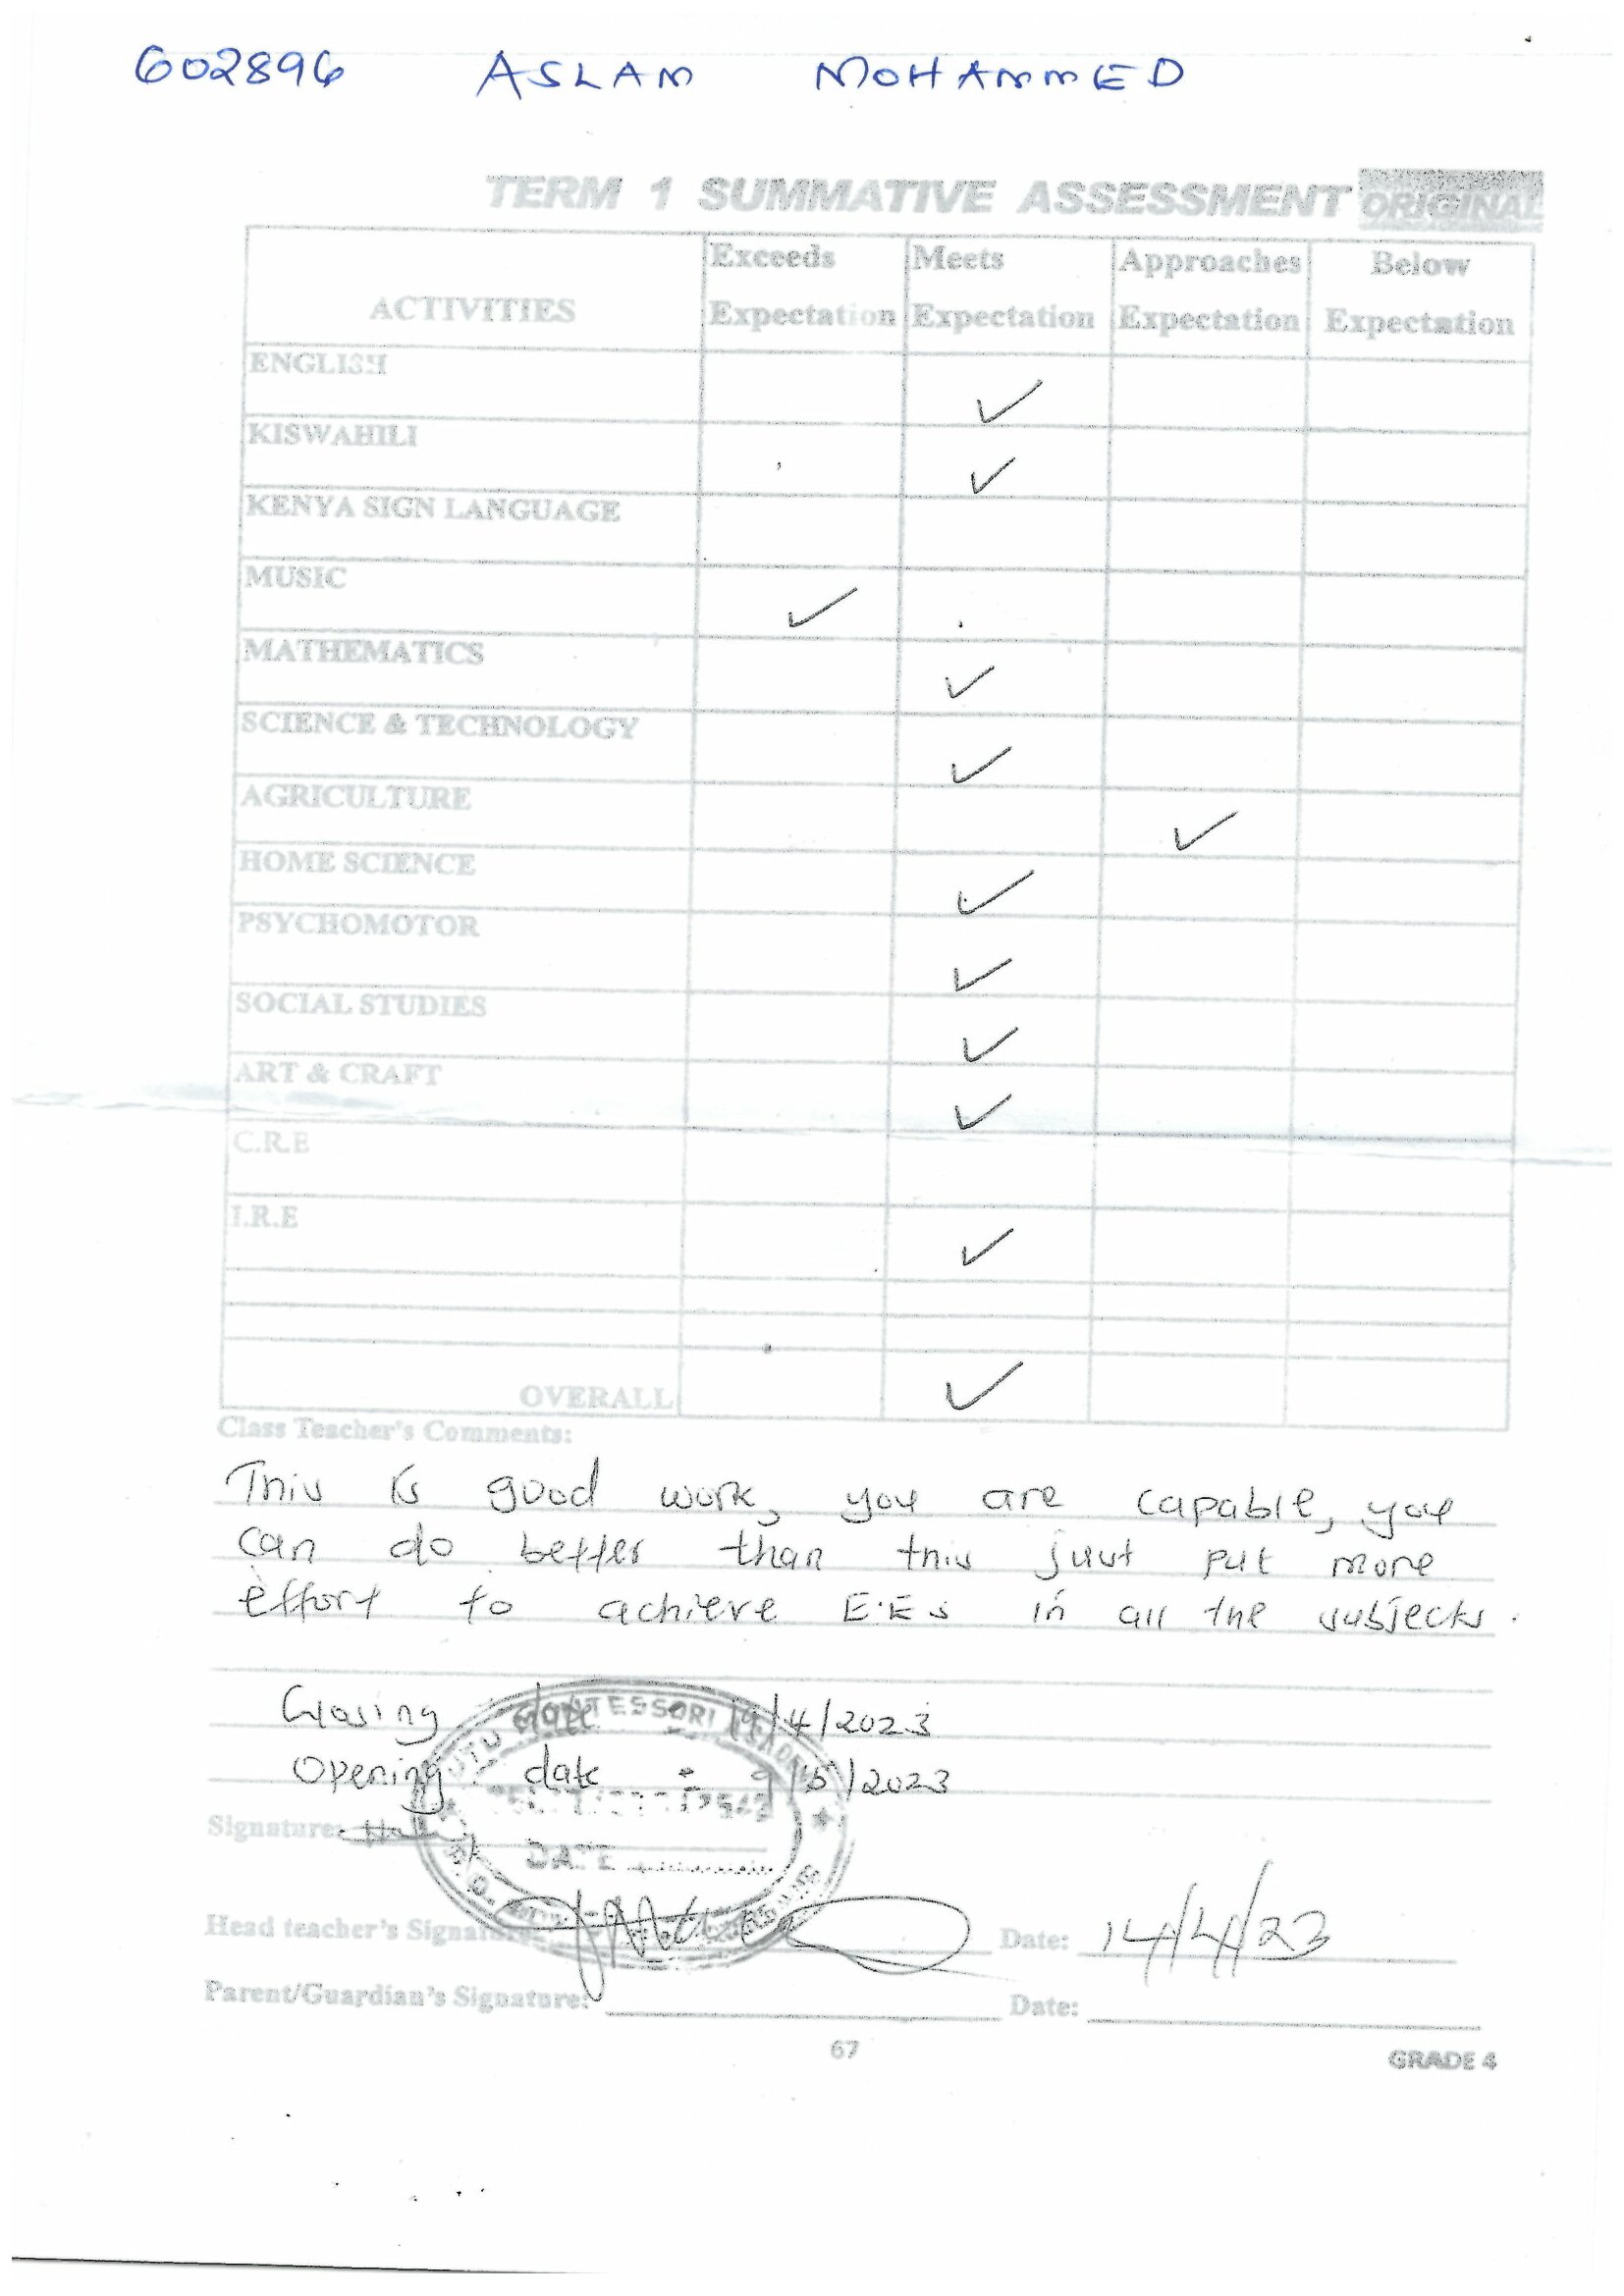 602896 ASLAM MOHAMMED
TERM 1 SUMMATIVE ASSESSMENT ORIGINAL
ACTIVITIES Exceeds Expectation Meets Expectation Approaches Expectation Below Expectation
ENGLISH ✓
KISWAHILI ✓
KENYA SIGN LANGUAGE
MUSIC ✓
MATHEMATICS ✓
SCIENCE & TECHNOLOGY ✓
AGRICULTURE ✓
HOME SCIENCE ✓
PSYCHOMOTOR ✓
SOCIAL STUDIES ✓
ART & CRAFT ✓
C.R.E
I.R.E ✓
OVERALL ✓
Class Teacher's Comments:
This is good work, you are capable, you
can do better than this just put more
effort to achieve E.Es in all the subjects.
Closing date - /4/2023
Opening date - 9/5/2023
Signature:
DATE
Head teacher's Signature: Date: 14/4/23
Parent/Guardian's Signature: Date:
67
GRADE 4